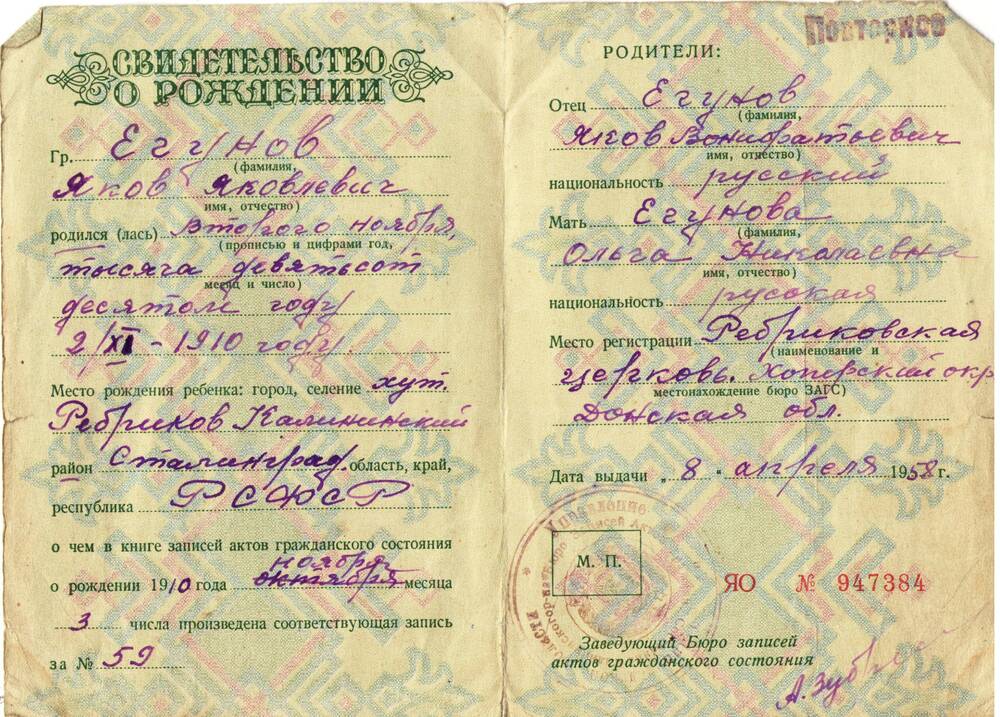 СВИДЕТЕЛЬСТВО
О РОЖДЕНИИ
Гр. Егунов
(фамилия,
Яков Яковлевич
имя, отчество)
родился (лась) Второго ноября,
(прописью и цифрами год,
тысяча девятьсот
месяц и число)
десятом году
2/XI - 1910 году
Место рождения ребенка: город, селение хут.
Ребриков Калининский
район Сталинград. область, край,
республика РСФСР
о чем в книге записей актов гражданского состояния
ноября
о рождении 1910 года октября месяца
3 числа произведена соответствующая запись
за № 59
Повторное
РОДИТЕЛИ:
Отец Егунов
(фамилия,
Яков Вонифатьевич
имя, отчество)
национальность русский
Мать Егунова
(фамилия,
Ольга Николаевна
имя, отчество)
национальность русская
Место регистрации Ребриковская
(наименование и
церковь. Хоперский окр
местонахождение бюро ЗАГС)
Донская обл.
Дата выдачи „8" апреля 1958 г.
М. П.
ЯО № 947384
Заведующий Бюро записей
актов гражданского состояния